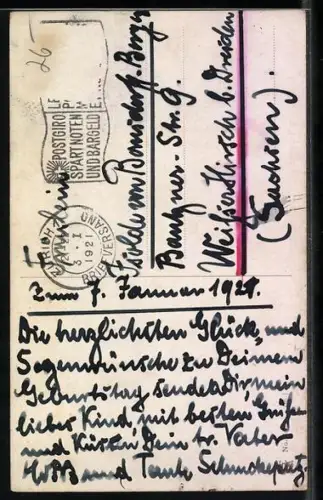 26-
POSTGIRO
SPART NOTEN
UND BARGELD
ZÜRICH
BRIEFVERSAND
3. I
1921
Fräulein
Bautzner-Str. 9.
Weißer Hirsch b. Dresden
(Sachsen).
Zum 7. Januar 1921.
Die herzlichsten Glück- und
Segenwünsche zu Deinem
Geburtstag sendet Dir, mein
liebes Kind, mit besten Grüßen
und Küssen Dein tr. Vater
und Tante